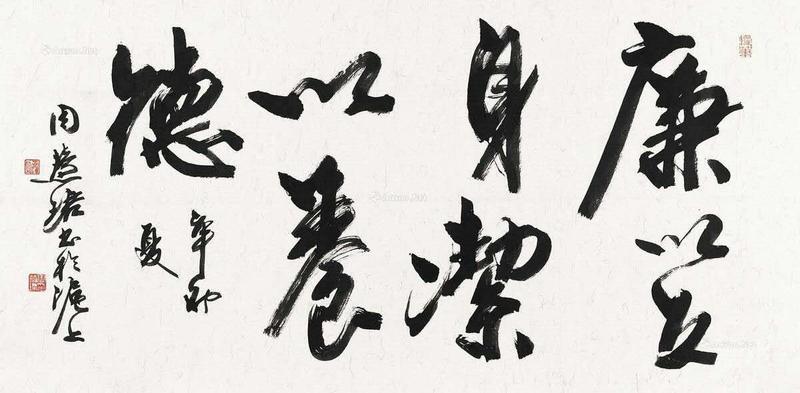 廉以立
身潔
以養
德
辛卯
夏
周慧珺书於滬上